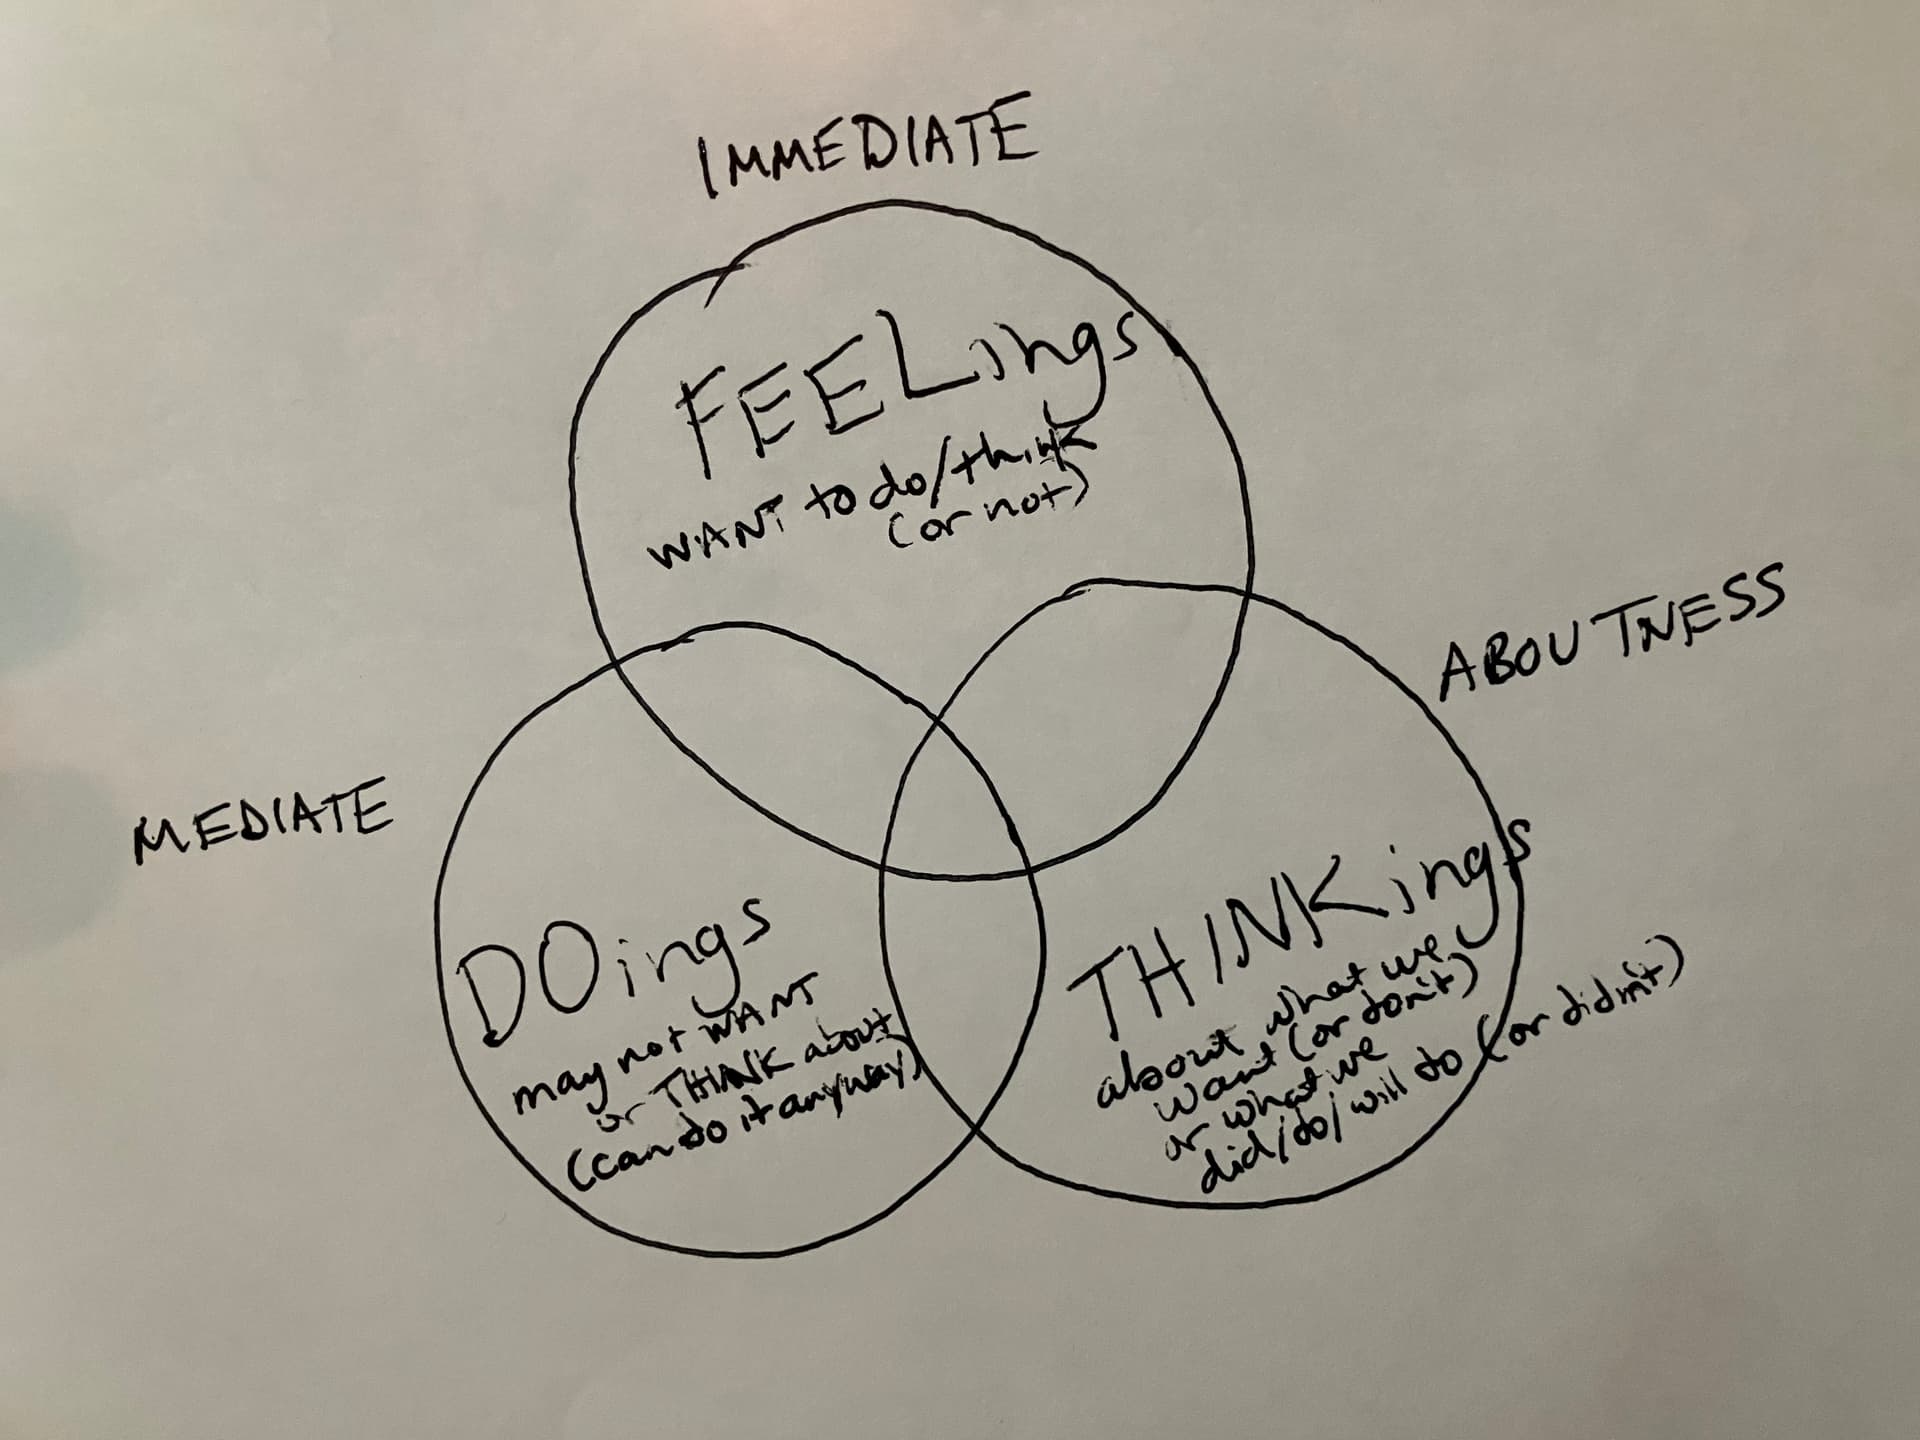 IMMEDIATE
FEELings
WANT to do/think
(or not)
ABOUTNESS
MEDIATE
DOings
may not WANT
or THINK about
(can do it anyway)
THINKings
about what we
want (or don't)
or what we
did/do/will do (or didn't)